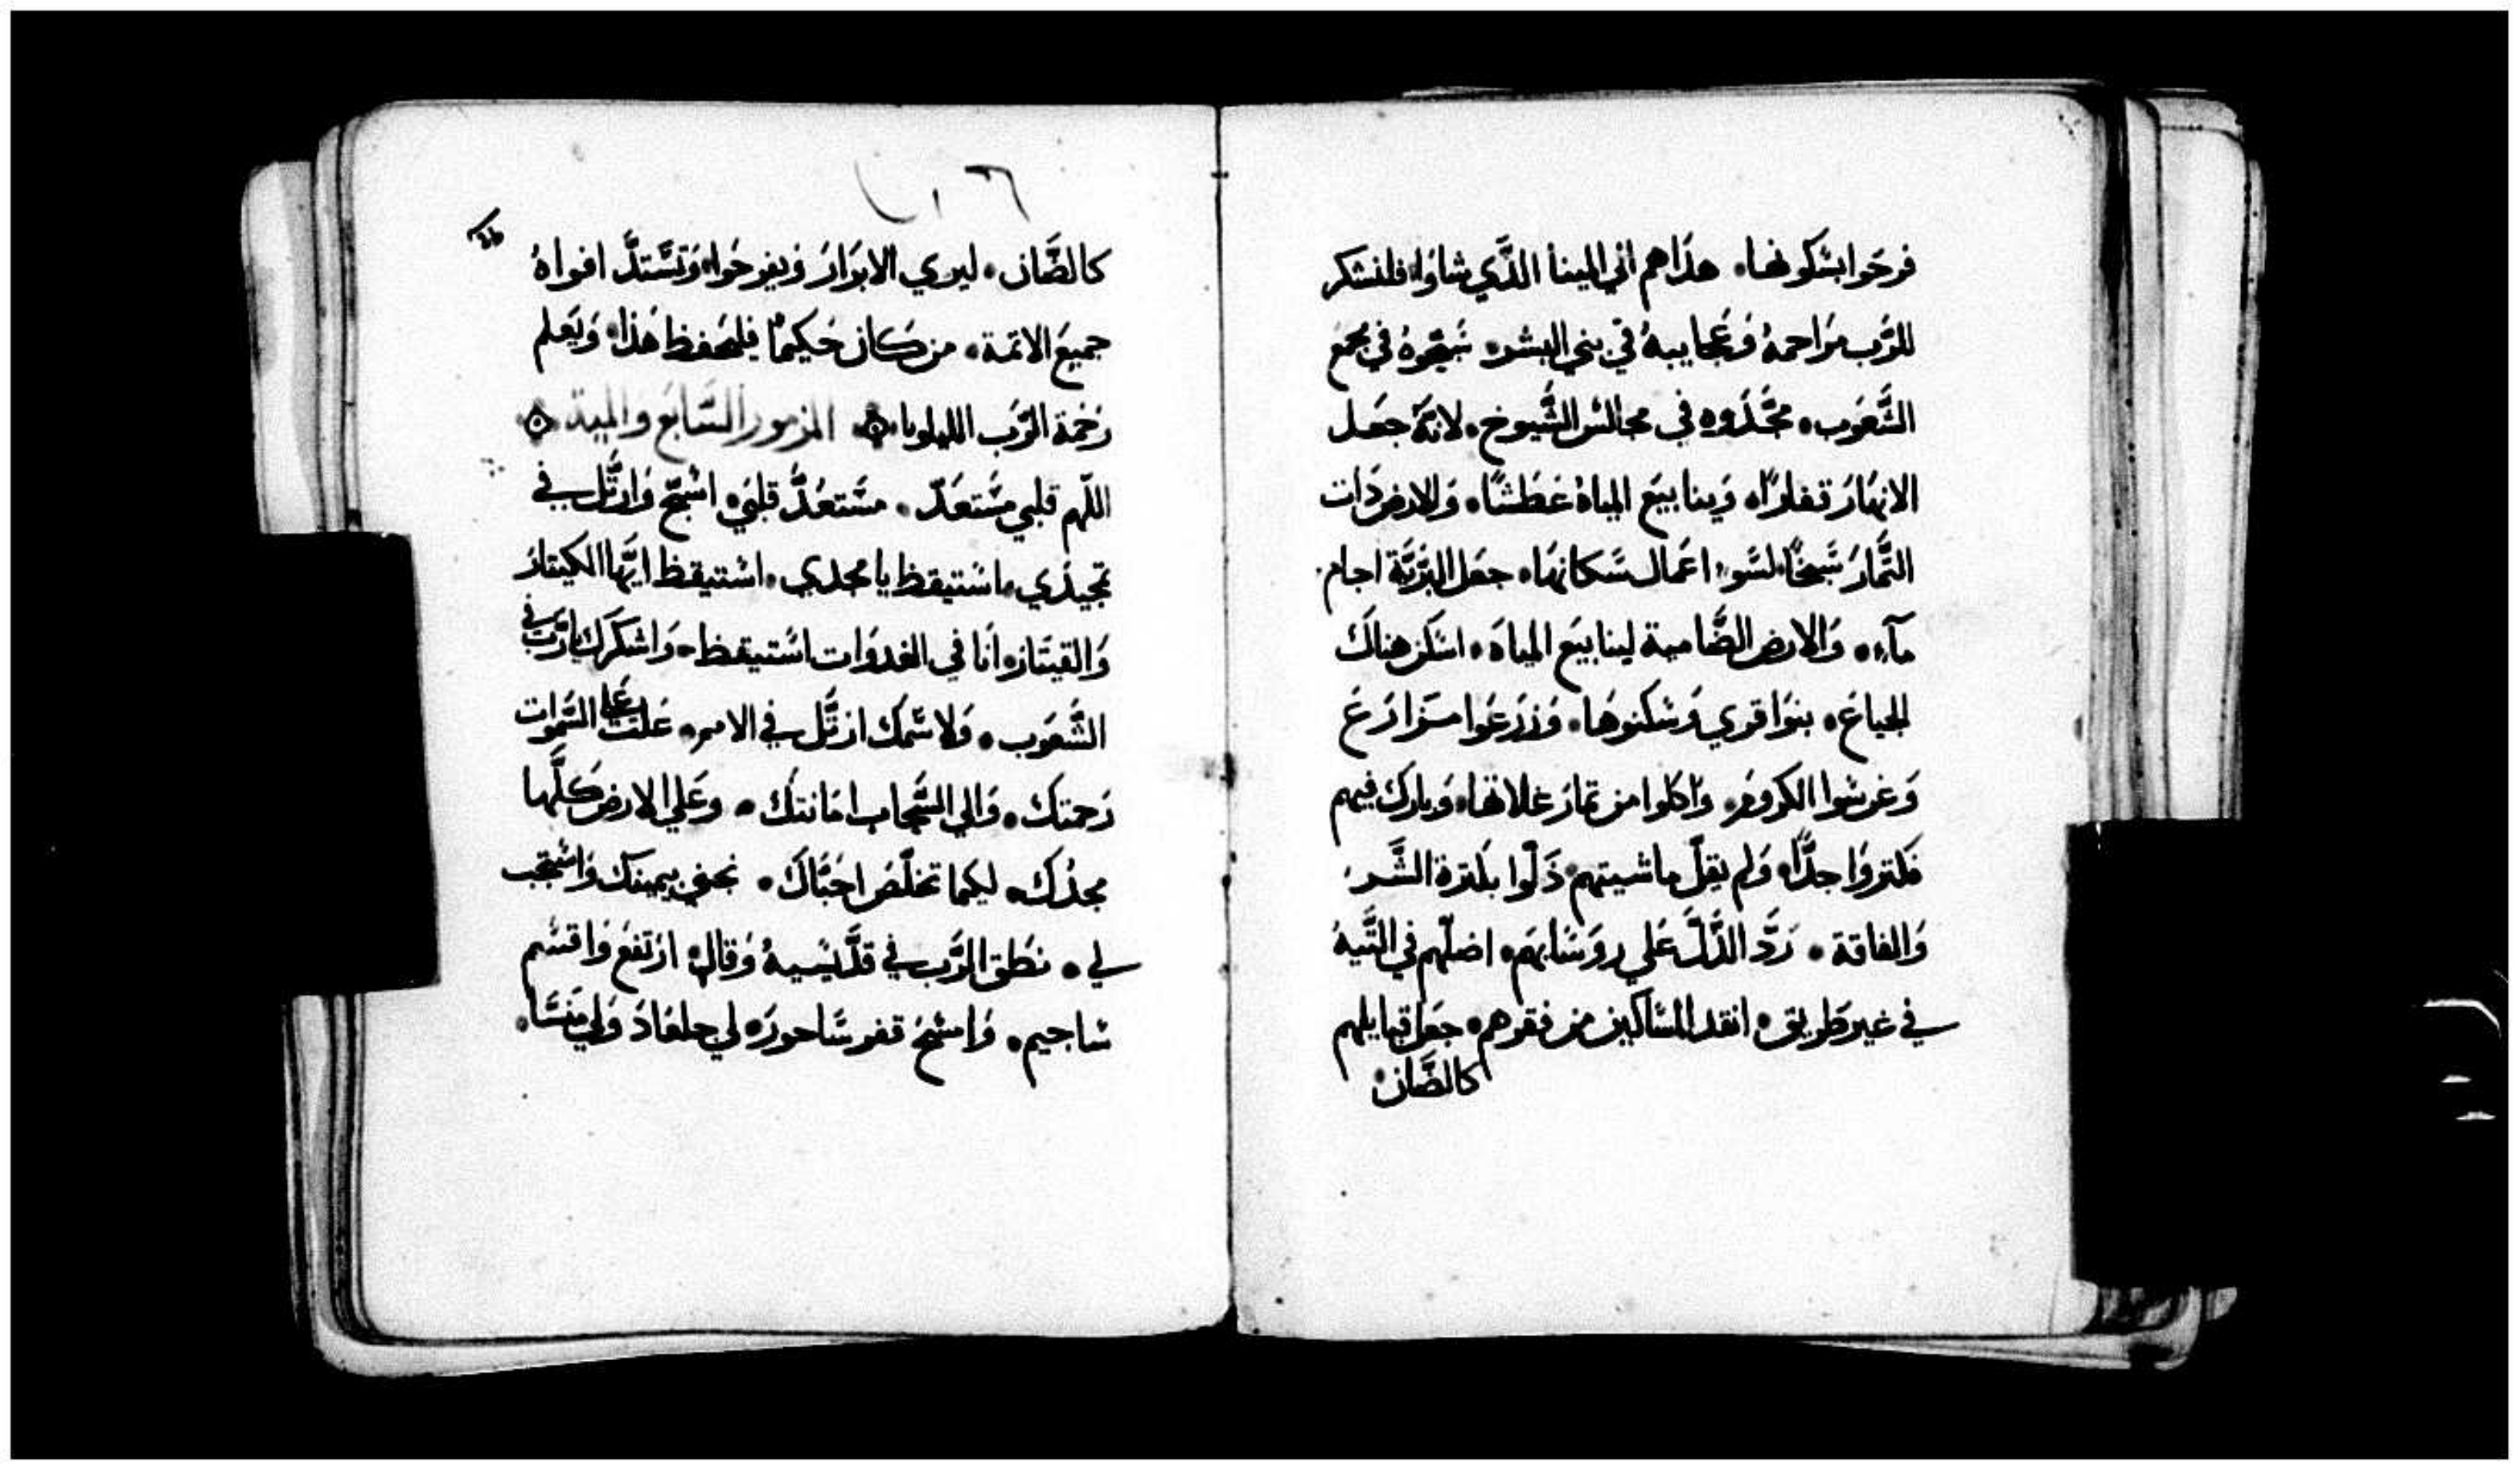 فرحَوا بسَكونها. هدَاهم الي المينا الذَّي شاوَا. فلنشكر
للرَّب مرَاحمهُ وَعَجايبهُ في بني البشر. سَبّحَوهُ في مجمع
الشَّعَوب. مجَّدَوه في مجالس الشَّيوخ. لانهَّ جعَل
الانهَارَ قفارًا. وَينابيَع المياهُ عَطَشًا. وَالارضَ ذَات
الثَّمارَ سَبَخًا. لسَّو اعَمال سَكانهَا. جعَل البرَّيَّة اجام.
مآء. وَالارض الضَّامية لينابيَع المياهَ. اسَكن هناَك
الجياعَ. بنوَا قري وَسَكنوهَا. وَزرَعَوا مزارَعَ
وَغرسَوا الكروم. وَاكلوا من ثمارَ غلاتها. وَبارَك فيهم
فكثروَا جدًّا. وَلم يقلّ ماشيتهم. ذَلّوا بكثرة الشَّر
وَالفاقة. رَدَّ الذَّلَّ عَلي روسَايهم. اضلّهم في التَّيهُ
في غير طَريق. انقد المسَاكين من فقرهم. جعَل قبايلهم
كالضَّان
١٠٦
كالضَّان. ليري الابرَارَ وَيفرحَوا. وَتسَّتدَّ افواهُ
جميعَ الاثمة. من كَان حَكيمًا فليحفظ هَذا. وَيَعلم
رَحمة الرَّب الليلويا المزمور السَّابَع والمية
اللّهم قلبي مسَّتعَدّ. مسَّتعدَُّ قلبَي. اسَبّح وَارتَّل في
تمجيدَي. اسَتيقظ يا مجدي. اسَتيقظ ايَّها الكيتارَ
وَالقيتَارَه انَا في الغدوَات اسَّتيقظ. وَاشكرَك يارَّب في
الشَّعَوب. وَلاسَّمك ارتَّل في الامم. عَلت عَلي السَّموات
رَحمتك. وَالي السَّحاب امَانتَك. وَعَلي الارض كلَّها
مجدَك. ليكما تخلّصَ احَبَّاك. نجني بيمينك وَاسَتجب
لي. نطَق الرَّب في قدَّيسَيهُ وَقال. ارَتفعَ وَاقسَم
ساجيم. وَامسَحَ قفر سَاحورَه لي جلعَادَ وَلي منَسَّا.